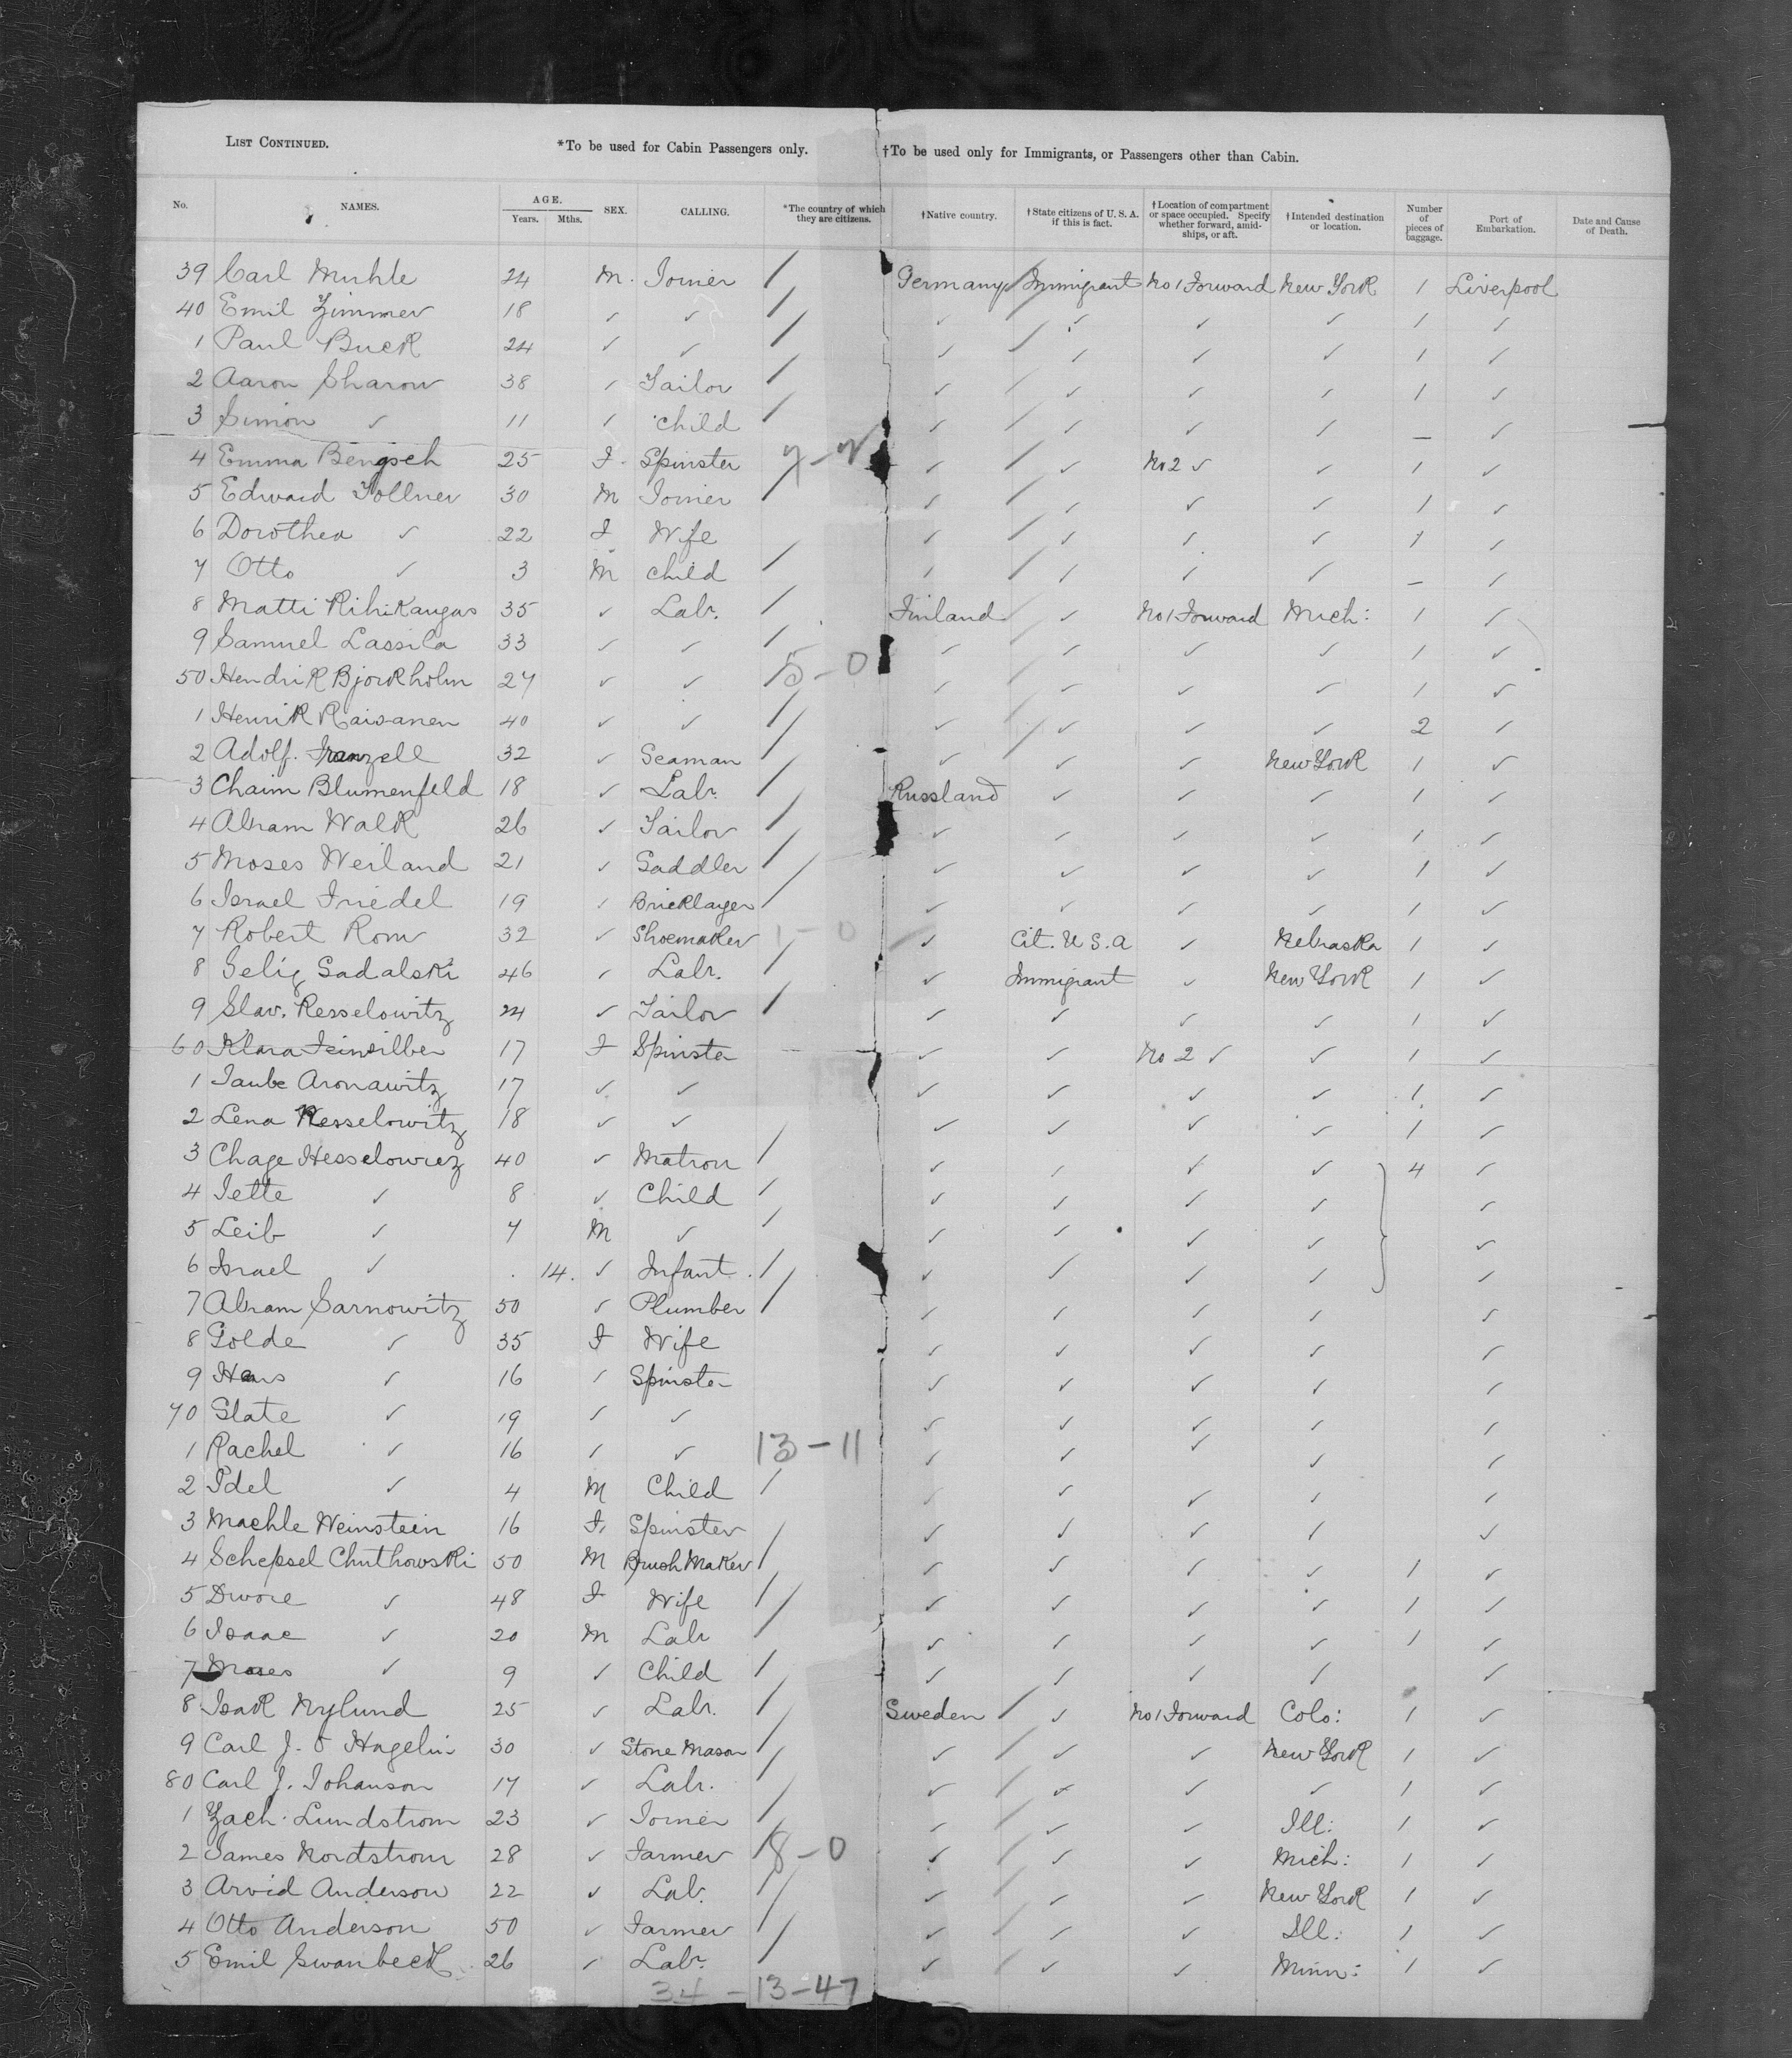 LIST CONTINUED. *To be used for Cabin Passengers only. †To be used only for Immigrants, or Passengers other than Cabin.
No. NAMES. AGE. Years. Mths. SEX. CALLING. *The country of which they are citizens. †Native country. †State citizens of U. S. A. if this is fact. †Location of compartment or space occupied. Specify whether forward, amidships, or aft. †Intended destination or location. Number of pieces of baggage. Port of Embarkation. Date and Cause of Death.
39 Carl Muhle 24 M. Joiner / Germany Immigrant No 1 Forward New York 1 Liverpool
40 Emil Zimmer 18 ✓ ✓ / ✓ ✓ ✓ ✓ 1 ✓
1 Paul Buck 24 ✓ ✓ / ✓ ✓ ✓ ✓ 1 ✓
2 Aaron Sharow 38 ✓ Tailor / ✓ ✓ ✓ ✓ 1 ✓
3 Simon ✓ 11 ✓ Child / ✓ ✓ ✓ ✓ — ✓
4 Emma Bengsch 25 F. Spinster 7-2 ✓ ✓ No 2 ✓ ✓ 1 ✓
5 Edward Tollner 30 M Joiner / ✓ ✓ ✓ ✓ 1 ✓
6 Dorothea ✓ 22 F Wife ✓ ✓ ✓ ✓ 1 ✓
7 Otto ✓ 3 M child / ✓ ✓ ✓ ✓ — ✓
8 Matti Rihikangas 35 ✓ Labr. / Finland ✓ No 1 Forward Mich: 1 ✓
9 Samuel Lassila 33 ✓ ✓ / ✓ ✓ ✓ ✓ 1 ✓
50 Hendrik Bjorkholm 27 ✓ ✓ / 5-0 ✓ ✓ ✓ ✓ 1 ✓
1 Henrik Raisanen 40 ✓ ✓ / ✓ ✓ ✓ ✓ 2 ✓
2 Adolf. Franzell 32 ✓ Seaman / ✓ ✓ ✓ New York 1 ✓
3 Chaim Blumenfeld 18 ✓ Labr. / Russland ✓ ✓ ✓ 1 ✓
4 Abram Walk 26 ✓ Tailor / ✓ ✓ ✓ ✓ 1 ✓
5 Moses Weiland 21 ✓ Saddler / ✓ ✓ ✓ ✓ 1 ✓
6 Israel Friedel 19 ✓ Bricklayer / ✓ ✓ ✓ ✓ 1 ✓
7 Robert Rom 32 ✓ Shoemaker 1-0 ✓ Cit. U S. a ✓ Nebraska 1 ✓
8 Selig Sadalski 46 ✓ Labr. / ✓ Immigrant ✓ New York 1 ✓
9 Slav. Resselowitz 24 ✓ Tailor / ✓ ✓ ✓ ✓ 1 ✓
60 Klara Feinsilber 17 F Spinster ✓ ✓ No 2 ✓ ✓ 1 ✓
1 Taube Aronawitz 17 ✓ ✓ ✓ ✓ ✓ ✓ 1 ✓
2 Lena Resselowitz 18 ✓ ✓ ✓ ✓ ✓ ✓ 1 ✓
3 Chage Hesselowicz 40 ✓ Matron / ✓ ✓ ✓ ✓ 4 ✓
4 Jette ✓ 8 ✓ Child / ✓ ✓ ✓ ✓ ✓
5 Leib ✓ 7 M ✓ / ✓ ✓ ✓ ✓ ✓
6 Israel ✓ 14. ✓ Infant. / ✓ ✓ ✓ ✓ ✓
7 Abram Sarnowitz 50 ✓ Plumber / ✓ ✓ ✓ ✓ ✓
8 Golde ✓ 35 F Wife ✓ ✓ ✓ ✓ ✓
9 ✓ 16 ✓ Spinster ✓ ✓ ✓ ✓ ✓
70 Slate ✓ 19 ✓ ✓ ✓ ✓ ✓ ✓ ✓
1 Rachel ✓ 16 ✓ ✓ 13-11 ✓ ✓ ✓ ✓ ✓
2 Idel ✓ 4 M Child / ✓ ✓ ✓ ✓ ✓
3 Machle Weinstein 16 F. Spinster / ✓ ✓ ✓ ✓ ✓
4 Schepsel Chuthowski 50 M Brush Maker / ✓ ✓ ✓ ✓ 1 ✓
5 Dwore ✓ 48 F Wife / ✓ ✓ ✓ ✓ 1 ✓
6 Isaac ✓ 20 M Labr / ✓ ✓ ✓ ✓ 1 ✓
7 Moses ✓ 9 ✓ Child / ✓ ✓ ✓ ✓ ✓
8 Isak Nylund 25 ✓ Labr. / Sweden ✓ No 1 Forward Colo: 1 ✓
9 Carl J. Hagelin 30 ✓ Stone Mason / ✓ ✓ ✓ New York 1 ✓
80 Carl J. Johanson 17 ✓ Labr. / ✓ ✓ ✓ ✓ 1 ✓
1 Zach. Lundstrom 23 ✓ Joiner / ✓ ✓ ✓ Ill: 1 ✓
2 James Nordstrom 28 ✓ Farmer / 8-0 ✓ ✓ ✓ Mich: 1 ✓
3 Arvid Anderson 22 ✓ Lab. / ✓ ✓ ✓ New York 1 ✓
4 Otto Anderson 50 ✓ Farmer / ✓ ✓ ✓ Ill: 1 ✓
5 Emil Swanbeck 26 ✓ Labr. / ✓ ✓ ✓ Minn: 1 ✓
34 - 13-47